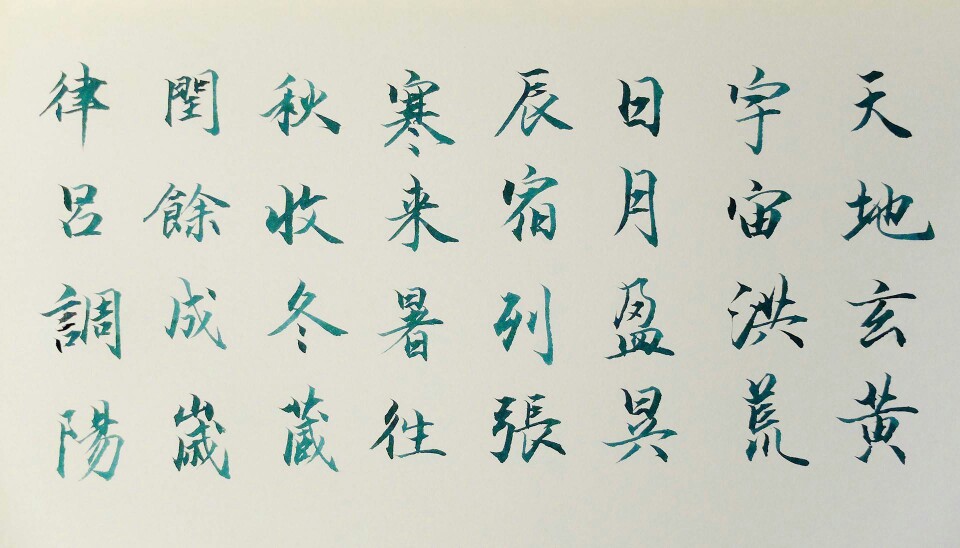 天地玄黄
宇宙洪荒
日月盈昃
辰宿列張
寒来暑往
秋收冬蔵
閏餘成歲
律呂調陽